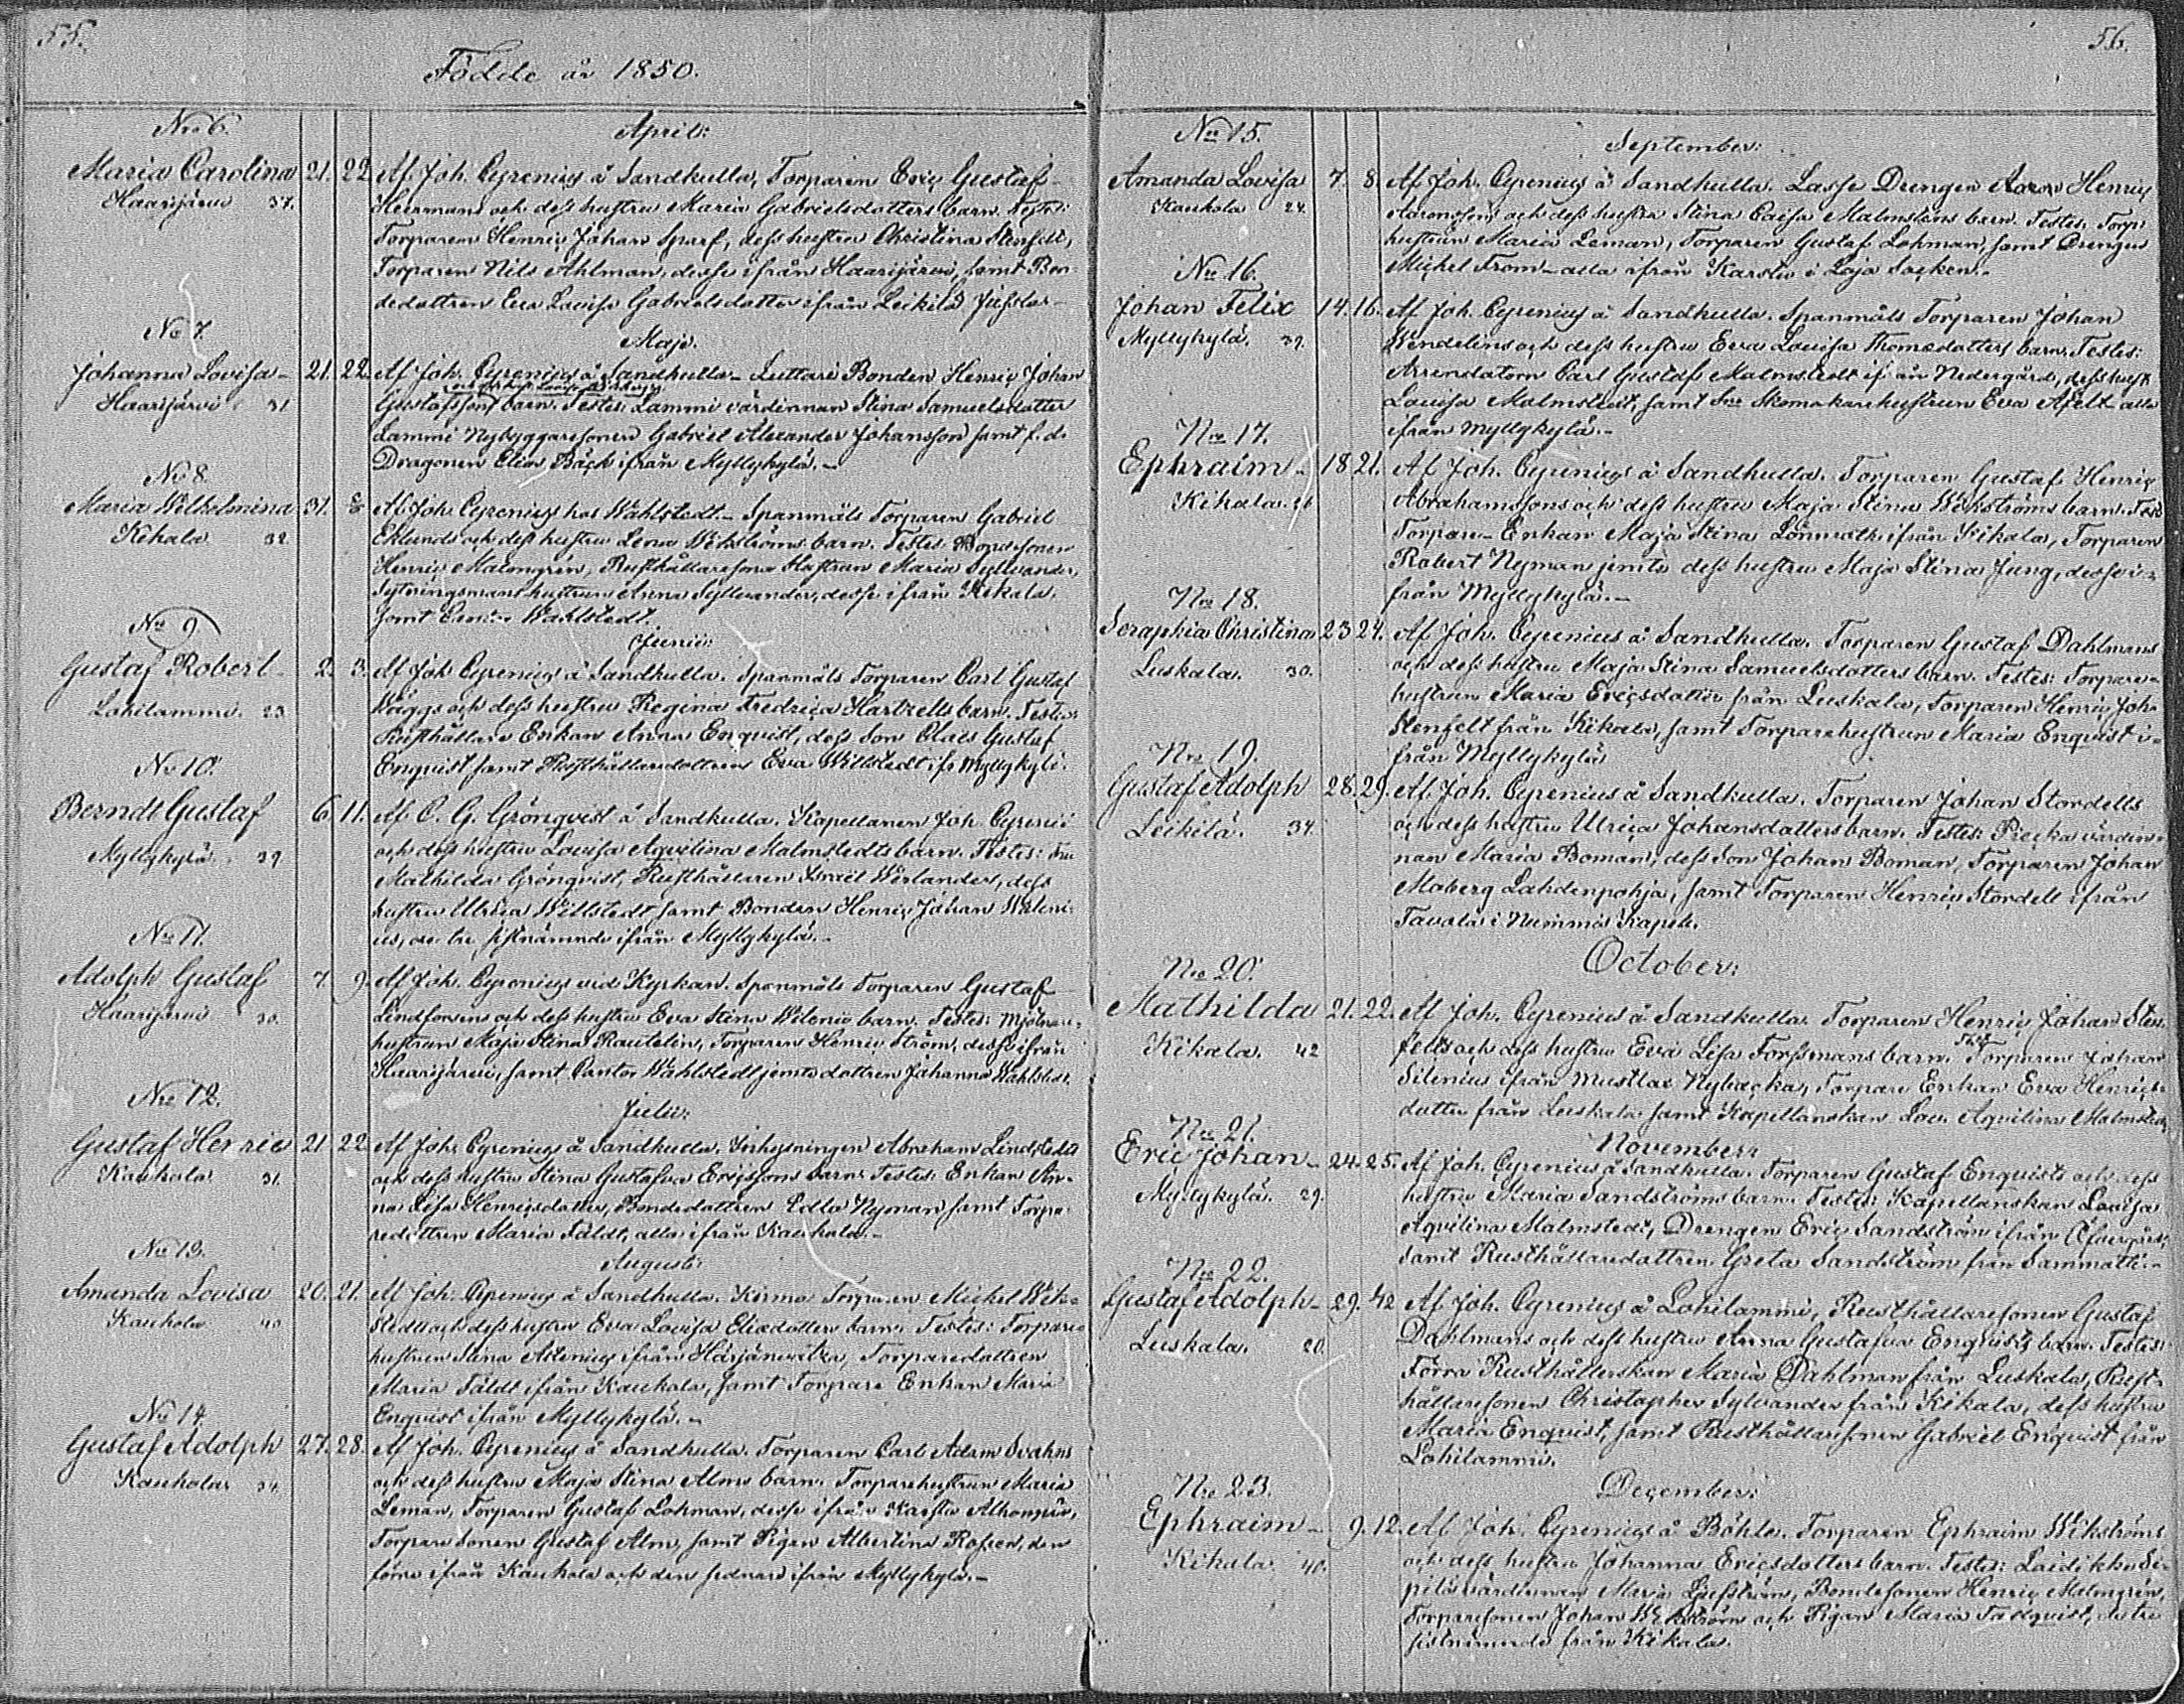 55.
Födde år 1850.
No 6.
April:
Maria Carolina 21. 22. Af Joh. Cyrenius å Sandkulla, Torparen Eric Gustaf
Haarijärvi 37. Heermans och dess hustru Maria Gabrielsdotters barn. Testes:
Torparen Henric Johan Sparf, dess hustru Christina Stenfelt,
Torparen Nils Ahlman, desse ifrån Haarijärvi, samt Bon-
dedottren Eva Lovisa Gabrielsdotter ifrån Leikilä
No 7.
Maji.
Johanna Lovisa 21. 22. Af Joh. Cyrenius å Sandkulla. Luttari Bonden Henric Johan
Haarijärvi 31. Gustafssons barn. Testes: Lammi värdinnan Stina Samuelsdotter
Lammi Nybyggaresonen Gabriel Alexander Johansson samt f.d.
Dragonen Elias Bäck ifrån Myllykylä.
No 8.
Maria Wilhelmina 31. Af Joh. Cyrenius hos Wahlstedt. Spanmåls Torparen Gabriel
Kikala 32. Eklunds och dess hustru Lena Wikströms barn. Testes: Bondesonen
Henric Malmgrén, Rusthållaresons Hustrun Maria Sylvander,
Sytningsmans hustrun Anna Sylvander, desse ifrån Kikala,
samt Wahlstedt.
No 9.
Junii:
Gustaf Robert 2. 3. Af Joh. Cyrenius å Sandkulla. Spanmåls Torparen Carl Gustaf
Lohilammi. 23. Häggs och dess hustru Regina Fredrica Hartzells barn. Testes:
Rusthållare Enkan Anna Enquist, dess Son Claes Gustaf
Enquist samt Rusthållaredottren Eva Willstedt ifr. Myllykylä.
No 10.
Berndt Gustaf 6. 11. Af C. G. Grönqvist å Sandkulla. Kapellanen Joh. Cyrenii
Myllykylä. 39. och dess hustru Lovisa Aqvilina Malmstedts barn. Testes: Fru
Mathilda Grönqvist, Rusthållaren Israël Wirlander, dess
hustru Ulrica Willstedt samt Bonden Henric Johan Waleni-
us, de tre sistnämnde ifrån Myllykylä.
No 11.
Adolph Gustaf 7. 9. Af Joh. Cyrenius vid Kyrkan. Spanmåls Torparen Gustaf
Haarijärvi 30. Lindforsens och dess hustru Eva Stina Wilenii barn. Testes: Mjölnare-
hustrun Maja Stina Rautelin, Torparen Henric Ström, desse ifrån
Haarijärvi, samt Cantor Wahlstedt jemte dottren Johanna Wahlstedt.
No 12.
Julii:
Gustaf Henric 21. 22. Af Joh. Cyrenius å Sandkulla. Inhysningen Abraham Lindstedts
Kaukola 31. och dess hustru Stina Gustafva Ericssons barn. Testes: Enkan An-
na Lisa Henricsdotter, Bondedottren Edla Nyman samt Torpa-
redottren Maria Fäldt, alla ifrån Kaukola.
No 13.
Augusti:
Amanda Lovisa 20. 21. Af Joh. Cyrenius å Sandkulla. Kirmo Torparen Michel Wik-
Kaukola 40. stedts och dess hustru Eva Lovisa Eliædotters barn. Testes: Torpare
hustrun Stina Alenius ifrån Härjänvatza, Torparedottren
Maria Fäldt ifrån Kaukola, samt Torpare Enkan Maria
Enqvist ifrån Myllykylä.
No 14.
Gustaf Adolph 27. 28. Af Joh. Cyrenius å Sandkulla. Torparen Carl Adam Svahns
Kaukola 34. och dess hustru Maja Stina Alms barn. Torparehustrun Maria
Leman, Torparen Gustaf Lohman, desse ifrån Karstu
Torpare Sonen Gustaf Alm, samt Pigan Albertina den
förre ifrån Kaukola och den sednare ifrån Myllykylä.
56.
No 15.
September:
Amanda Lovisa 7. 8. Af Joh. Cyrenius å Sandkulla. Lasse Drengen Aaron Henric
Kaukola 24. Aaronssons och dess hustru Stina Caisa Malmstens barn. Testes: Torp:
hustrun Maria Leman, Torparen Gustaf Lohman, samt Drengen
Michel From alla ifrån Karstu i Lojo Socken.
No 16.
Johan Felix 14. 16. Af Joh. Cyrenius å Sandkulla. Spanmåls Torparen Johan
Myllykylä. 39. Wendelins och dess hustru Eva Lovisa Thomædotters barn. Testes:
Arrendatorn Carl Gustaf Malmstedt ifrån Nedergård, dess hust.
Lovisa Malmstedt, samt Skomakarehustrun Eva Afelt alla
ifrån Myllykylä.
No 17.
Ephraim 18. 21. Af Joh. Cyrenius å Sandkulla. Torparen Gustaf Henric
Kikala. 26 Abrahamssons och dess hustru Maja Stina Wikströms barn. Test:
Torpare-Enkan Maja Stina Lönnroth ifrån Kikala, Torparen
Robert Nyman jemte dess hustru Maja Stina Jung, desse i-
från Myllykylä.
No 18.
Seraphia Christina 23. 24. Af Joh. Cyrenius å Sandkulla. Torparen Gustaf Dahlmans
Luskala. 30. och dess hustru Maja Stina Samuelsdotters barn. Testes: Torpare-
hustrun Maria Ericsdotter från Luskala, Torparen Henric Joh.
Stenfelt från Kikala, samt Torparehustrun Maria Enqvist i-
från Myllykylä.
No 19.
Gustaf Adolph 28. 29. Af Joh. Cyrenius å Sandkulla. Torparen Johan Stordells
Leikilä. 34. och dess hustru Ulrica Johansdotters barn. Testes: Piecka värdin-
nan Maria Boman, dess Son Johan Boman, Torparen Johan
Moberg Lahdenpohja, samt Torparen Henric Stordell ifrån
Tavola i Nummis Kapell.
October:
No 20.
Mathilda 21. 22. Af Joh. Cyrenius å Sandkulla. Torparen Henric Johan Sten-
Kikala. 42 felts och dess hustru Eva Lisa Forssmans barn. Test: Torparen Johan
Silenius ifrån Mustlax Nybacka, Torpare Enkan Eva Henrics-
dotter från Luskala samt Kapellanskan Lov. Aqvilina Malmstedt
November:
No 21.
Eric Johan 24. 25. Af Joh. Cyrenius å Sandkulla. Torparen Gustaf Enquists och dess
Myllykylä. 29. hustru Maria Sandströms barn. Testes: Kapellanskan Lovisa
Aqvilina Malmstedt, Drengen Eric Sandström ifrån Öfvergård,
samt Rusthållaredottren Greta Sandström från Sammatti.
No 22.
Gustaf Adolph 29. 1/12 Af Joh. Cyrenius å Lohilammi, Rusthållaresonen Gustaf
Luskala. 20. Dahlmans och dess hustru Anna Gustafva Enqvists barn. Testes:
Förra Rusthållerskan Maria Dahlman från Luskala, Rust-
hållaresonen Christopher Sylvander från Kikala, dess hustru
Maria Enqvist, samt Rusthållaresonen Gabriel Enqvist från
Lohilammi.
December:
No 23.
Ephraim 9. 12. Af Joh. Cyrenius å Böhle. Torparen Ephraim Wikströms
Kikala. 40. och dess hustru Johanna Ericsdotters barn. Testes: Laidikka Si-
pilä värdinnan Maria Ljefström, Bondesonen Henric Malmgrén,
Torparesonen Johan Wikström och Pigan Maria Tallqvist, de tre
sistnämnde från Kikala.